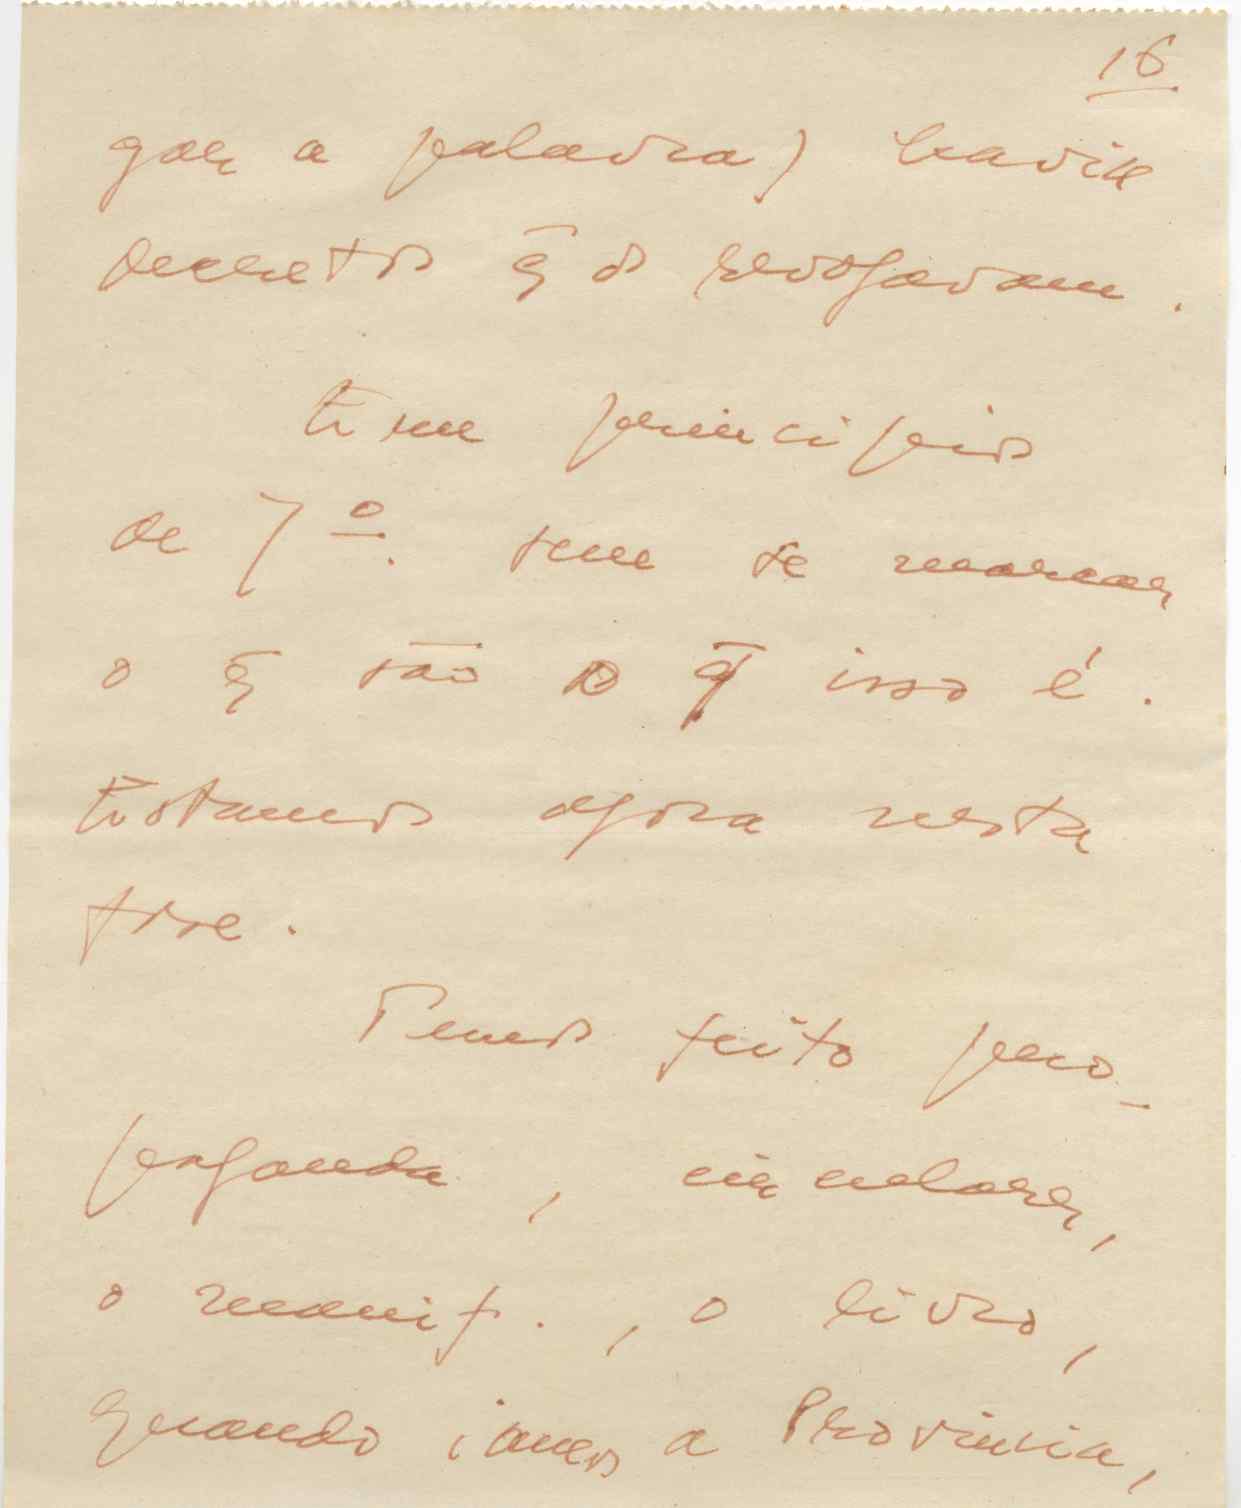 16
gar a palavra) havia
decretos q̄ os revogavam.
Em principios
de 7º. sem se marcar
o q̄ são o q̄ isso é.
Estamos agora nesta
fase.
Temos feito pro-
paganda, circulares,
o manif., o livro,
quando iamos a Provincia,